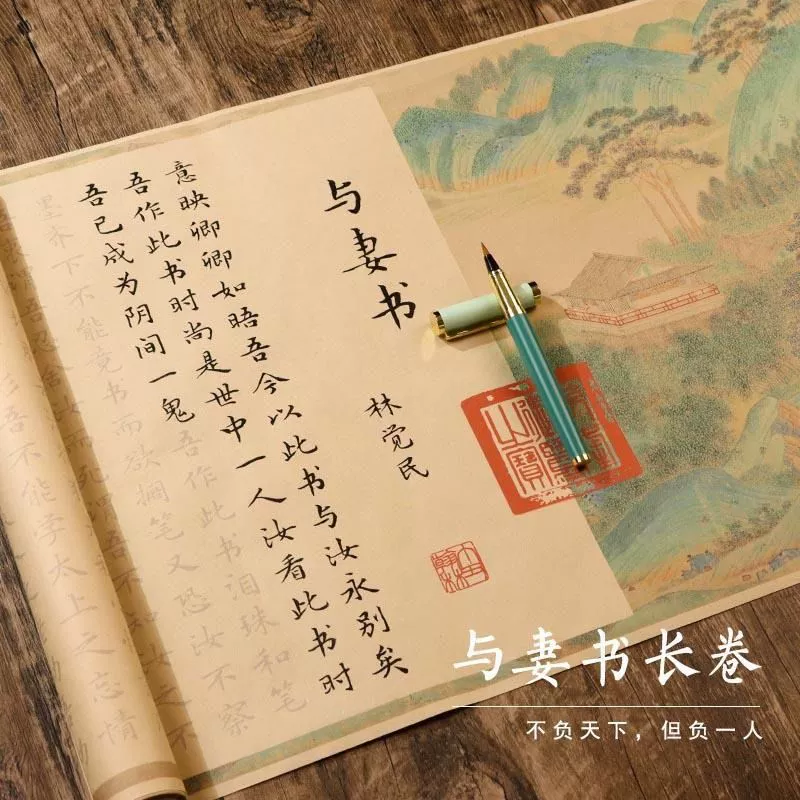 与妻书
林觉民
意映卿卿如晤吾今以此书与汝永别矣
吾作此书时尚是世中一人汝看此书时
吾已成为阴间一鬼吾作此书泪珠和笔
墨齐下不能竟书而欲搁笔又恐汝不察
谓吾忍舍汝而死谓吾不知汝之不
吾不能学太上之忘情
之寶
与妻书长卷
不负天下，但负一人